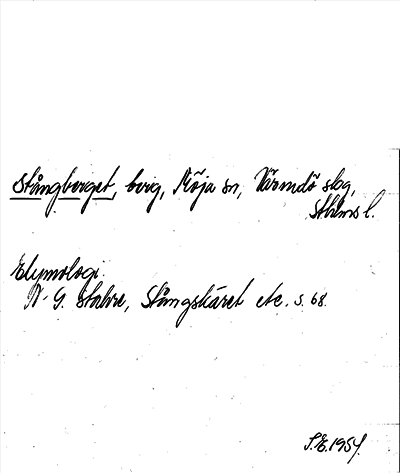 Stångberget, berg, Möja sn, Värmdö skg,
Sthlms l.
Etymologi
N. G. Stahre, Stångskäret etc. s. 68.
S.E. 1954.